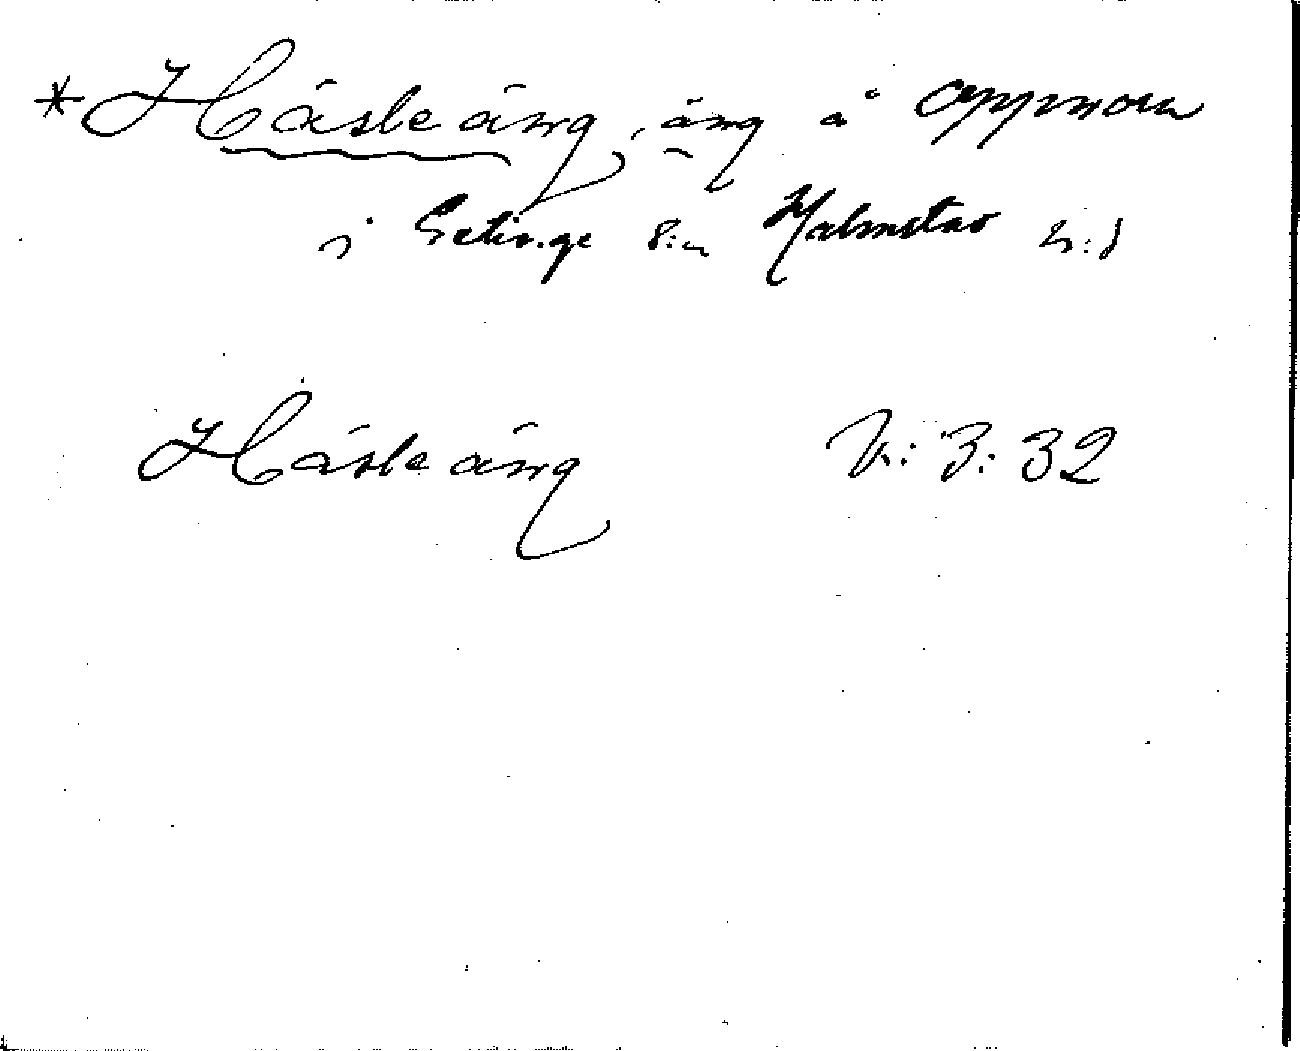 * Häsleäng, äng å Oppmora
i Getinge s:n Halmstad h:d
Häsleäng V: 3: 32